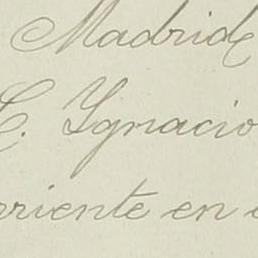 Madrid
C. Ygnacio
rriente en